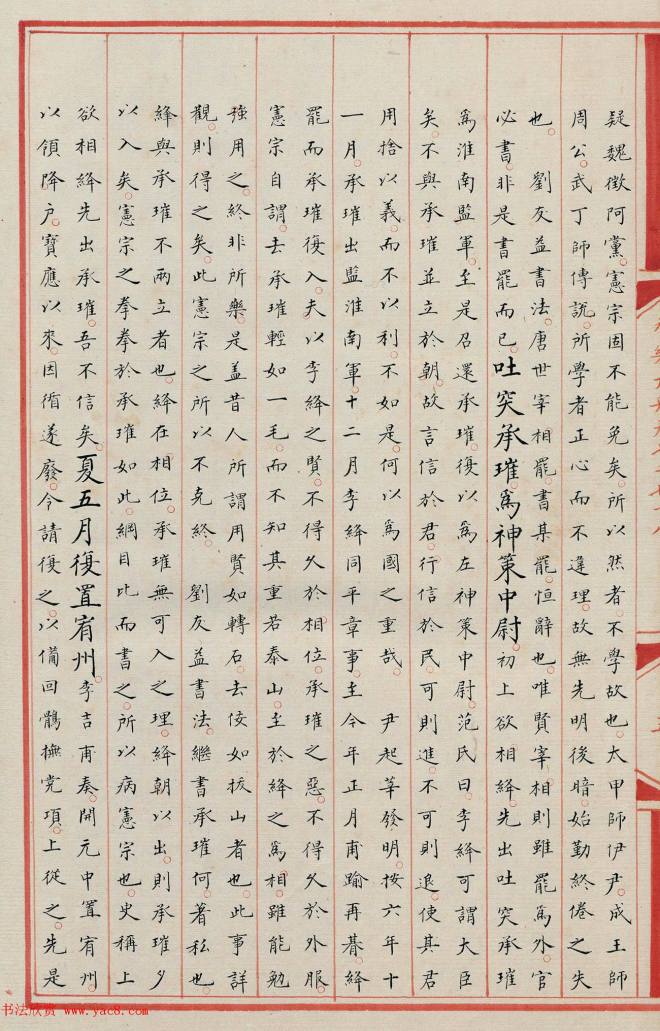 疑魏徵阿黨憲宗固不能免矣所以然者不學故也太甲師伊尹成王師
周公武丁師傅說所學者正心而不違理故無先明後暗始勤終倦之失
也　劉友益書法唐世宰相罷書某罷恒辭也唯賢宰相則雖罷為外官
必書非是書罷而已吐突承璀為神策中尉初上欲相絳先出吐突承璀
為淮南監軍至是召還承璀復以為左神策中尉范氏曰李絳可謂大臣
矣不與承璀並立於朝故言信於君行信於民可則進不可則退使其君
用捨以義而不以利不如是何以為國之重哉　尹起莘發明按六年十
一月承璀出監淮南軍十二月李絳同平章事至今年正月甫踰再朞絳
罷而承璀復入夫以李絳之賢不得久於相位承璀之惡不得久於外服
憲宗自謂去承璀輕如一毛而不知其重若泰山至於絳之為相雖能勉
強用之終非所樂是盖昔人所謂用賢如轉石去佞如拔山者也此事詳
觀則得之矣此憲宗之所以不克終　劉友益書法繼書承璀何著私也
絳與承璀不兩立者也絳在相位承璀無可入之理絳朝以出則承璀夕
以入矣憲宗之拳拳於承璀如此綱目比而書之所以病憲宗也史稱上
欲相絳先出承璀吾不信矣夏五月復置宥州李吉甫奏開元中置宥州
以領降户寶應以來因循遂廢今請復之以備回鶻撫党項上從之先是
书法欣赏 http://www.yac8.com